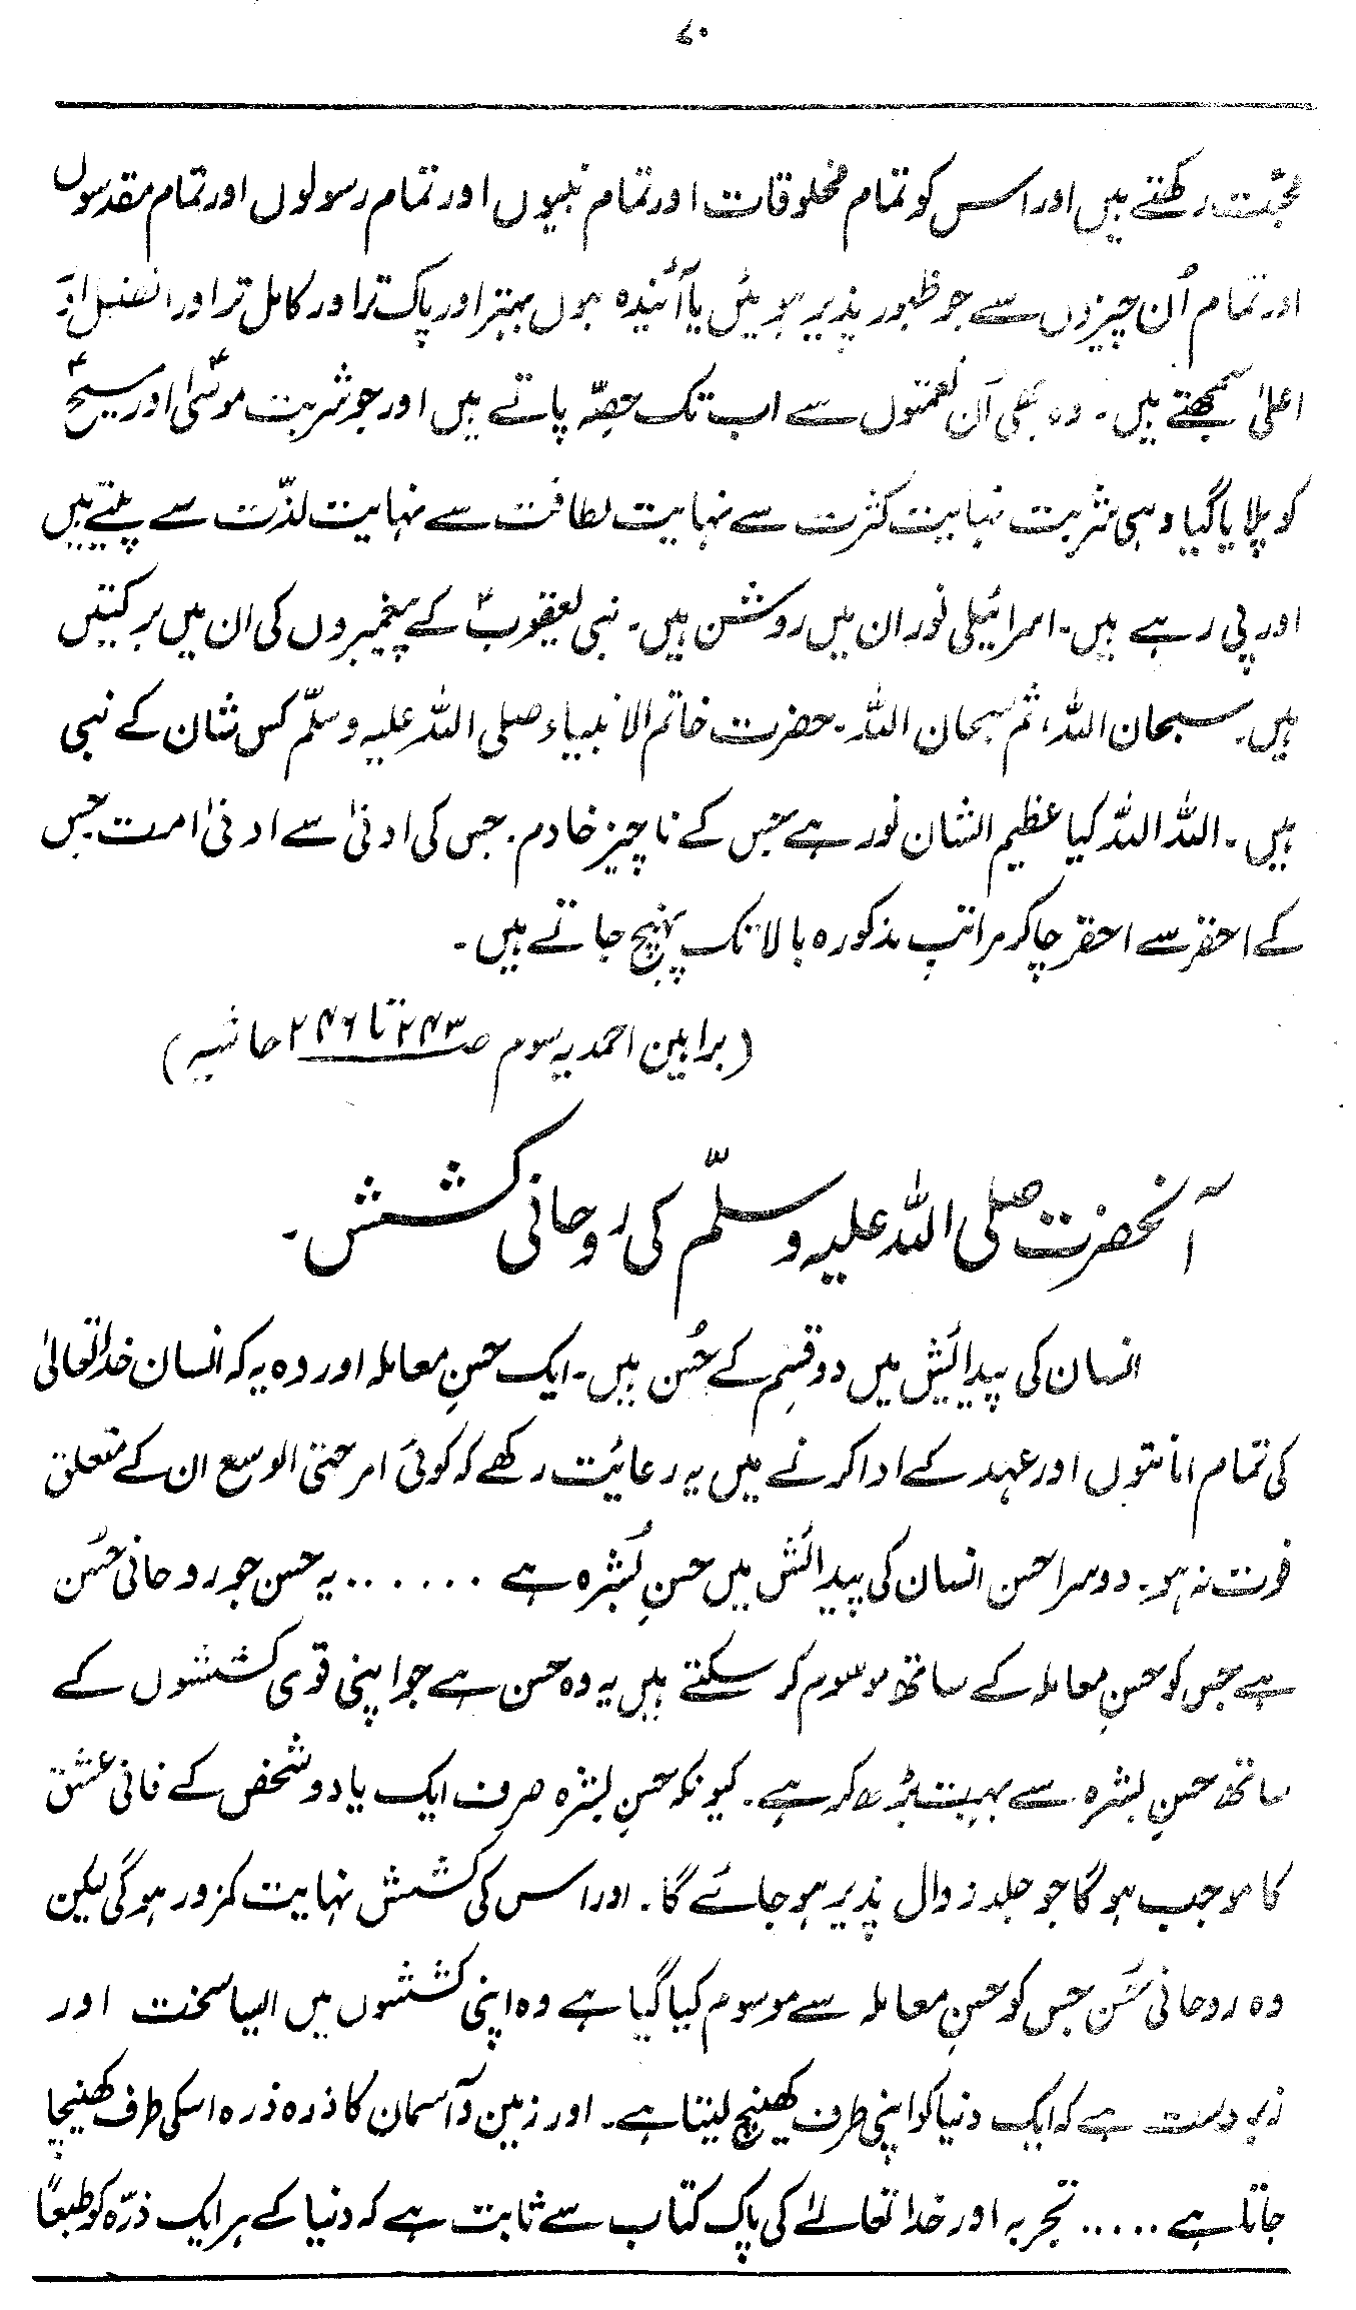 ۷۰
محبّت رکھتے ہیں اور اس کو تمام مخلوقات اور تمام نبیوں اور تمام رسولوں اور تمام مقدسوں
اور تمام اُن چیزوں سے جو ظہور پذیر ہوئیں یا آئیندہ ہوں بہتر اور پاک تر اور کامل تر اور افضل اور
اعلیٰ سمجھتے ہیں۔ وہ بھی اُن نعمتوں سے اب تک حصّہ پاتے ہیں اور جو شربت موسیٰؑ اور مسیحؑ
کو پلایا گیا وہی شربت نہایت کثرت سے نہایت لطافت سے نہایت لذّت سے پیتے ہیں
اور پی رہے ہیں۔ اسرائیلی نور ان میں روشن ہیں۔ نبی یعقوبؑ کے پیغمبروں کی ان میں برکتیں
ہیں۔ سبحان اللہ، ثم سبحان اللہ۔ حضرت خاتم الانبیاء صلی اللہ علیہ وسلّم کس شان کے نبی
ہیں۔ اللہ اللہ کیا عظیم الشان نور ہے جس کے ناچیز خادم۔ جس کی ادنیٰ سے ادنیٰ امت جس
کے احقر سے احقر چاکر مراتب مذکورہ بالا تک پہنچ جاتے ہیں۔
(براہین احمدیہ سوم صـ۲۴۳ تا ۲۴۶ حاشیہ)
آنحضرت صلی اللہ علیہ وسلّم کی روحانی کشش۔
انسان کی پیدائیش میں دو قسِم کے حُسن ہیں۔ ایک حسنِ معاملہ اور وہ یہ کہ انسان خدا تعالیٰ
کی تمام امانتوں اور عہد کے ادا کرنے میں یہ رعائیت رکھے کہ کوئی امر حتیٰ الوسع ان کے متعلق
فوت نہ ہو۔ دوسرا حسن انسان کی پیدائش میں حسنِ بُشرہ ہے ...... یہ حسن جو روحانی حُسن
ہے جس کو حسنِ معاملہ کے ساتھ موسوم کر سکتے ہیں یہ وہ حسن ہے جو اپنی قوی کششوں کے
ساتھ حسنِ بشرہ سے بہت بڑھ کر ہے۔ کیونکہ حسنِ بشرہ صرف ایک یا دو شخص کے فانی عشق
کا موجب ہوگا جو جلد زوال پذیر ہو جائے گا۔ اور اس کی کشش نہایت کمزور ہوگی لیکن
وہ روحانی حُسن جس کو حسنِ معاملہ سے موسوم کیا گیا ہے وہ اپنی کششوں میں ایسا سخت اور
زبردست ہے کہ ایک دنیا کو اپنی طرف کھینچ لیتا ہے۔ اور زمین و آسمان کا ذرہ ذرہ اسکی طرف کھینچا
جاتا ہے ..... تجربہ اور خدا تعالےٰ کی پاک کتاب سے ثابت ہے کہ دنیا کے ہر ایک ذرّہ کو طبعاً